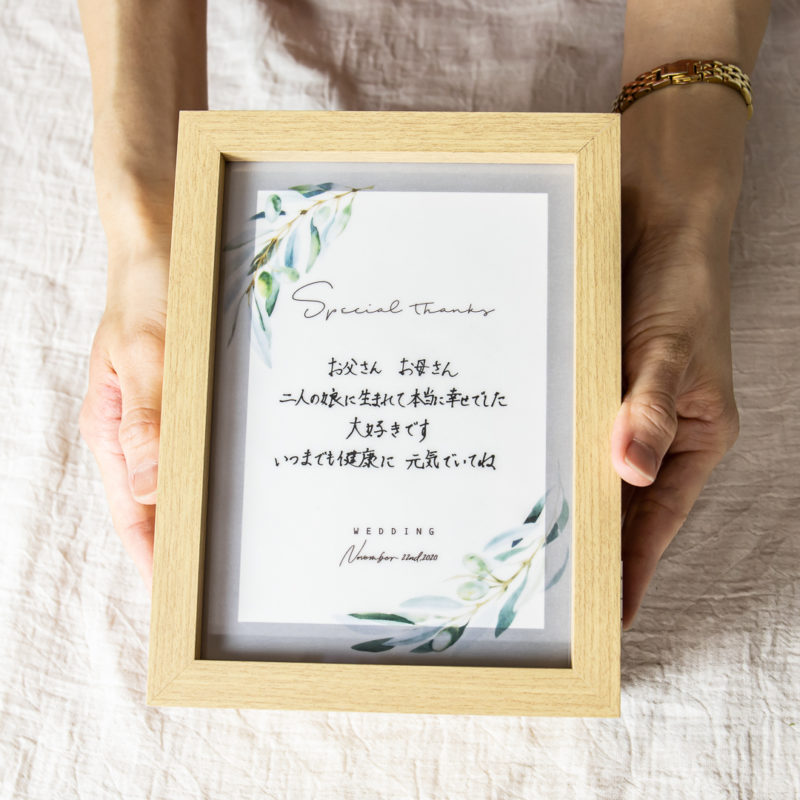 Special thanks
お父さん お母さん
二人の娘に生まれて本当に幸せでした
大好きです
いつまでも健康に 元気でいてね
WEDDING
November 22nd,2020